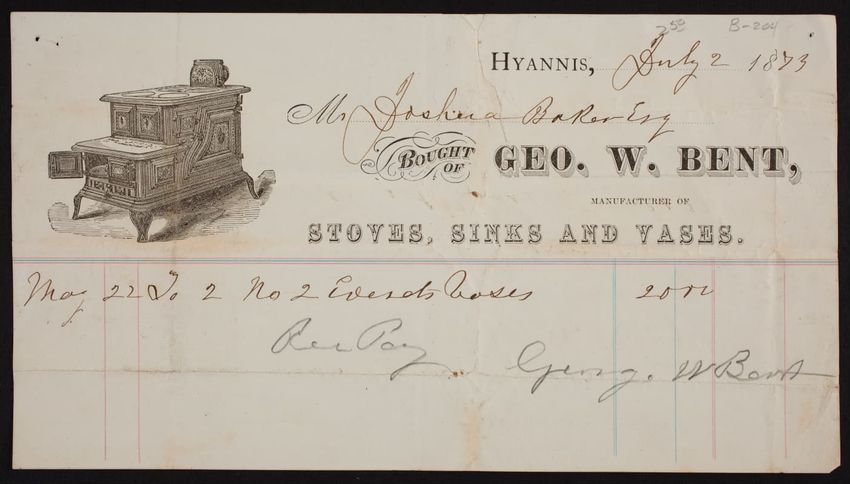 2 50 B-204
HYANNIS, July 2 1873
Mr Joshua Baker Esq
BOUGHT OF GEO. W. BENT,
MANUFACTURER OF
STOVES, SINKS AND VASES.
May 22 To 2 No 2 Vases 20 00
Rec Pay
Georg. W Bent